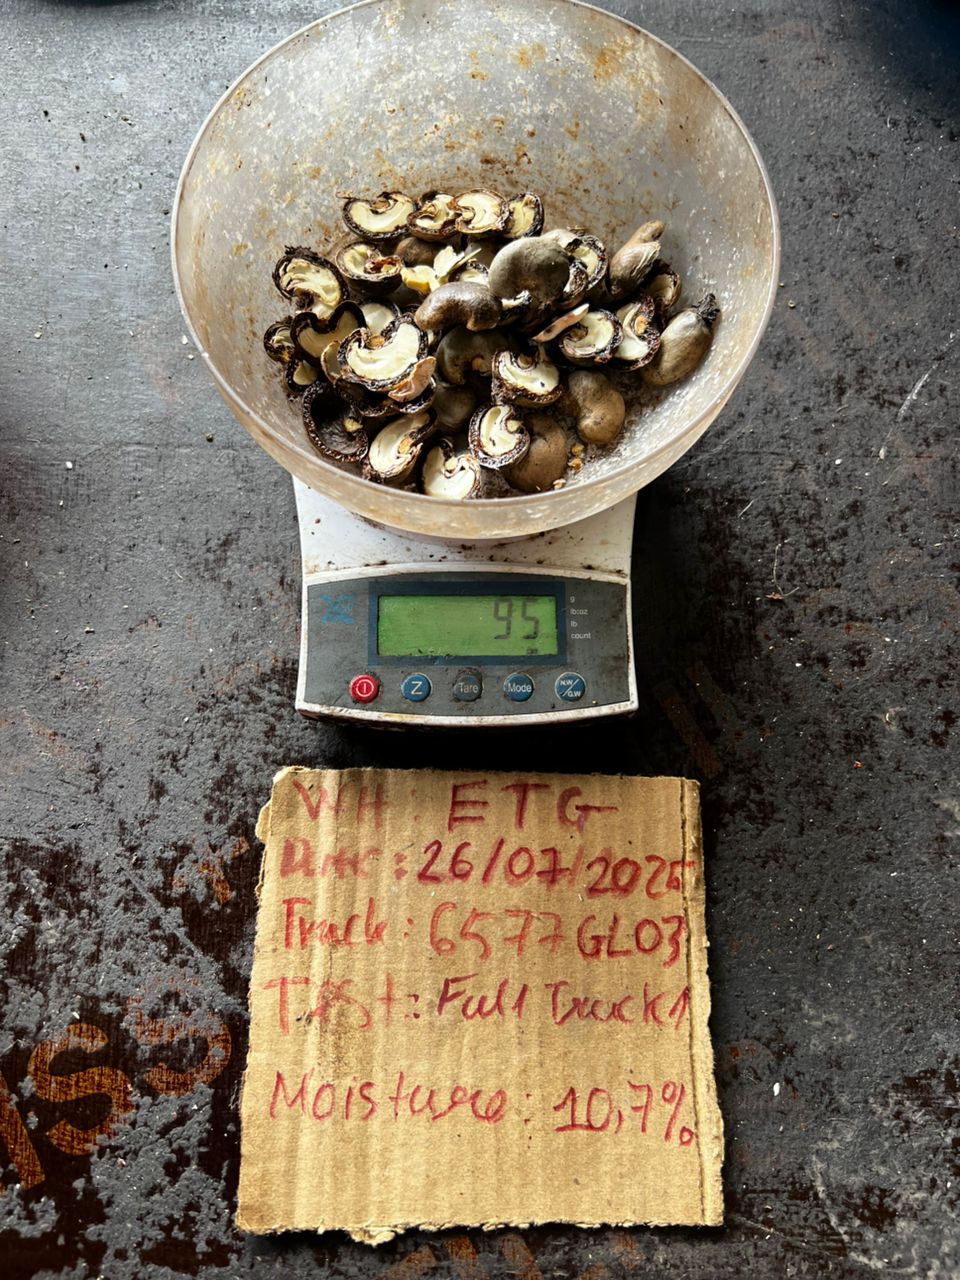 95
g
lb:oz
lb
count
Z
Tare
Mode
N.W/G.W
W/H: ETG
Date: 26/07/2025
Truck: 6577GL03
Test: Full Truck1
Moisture: 10,7%